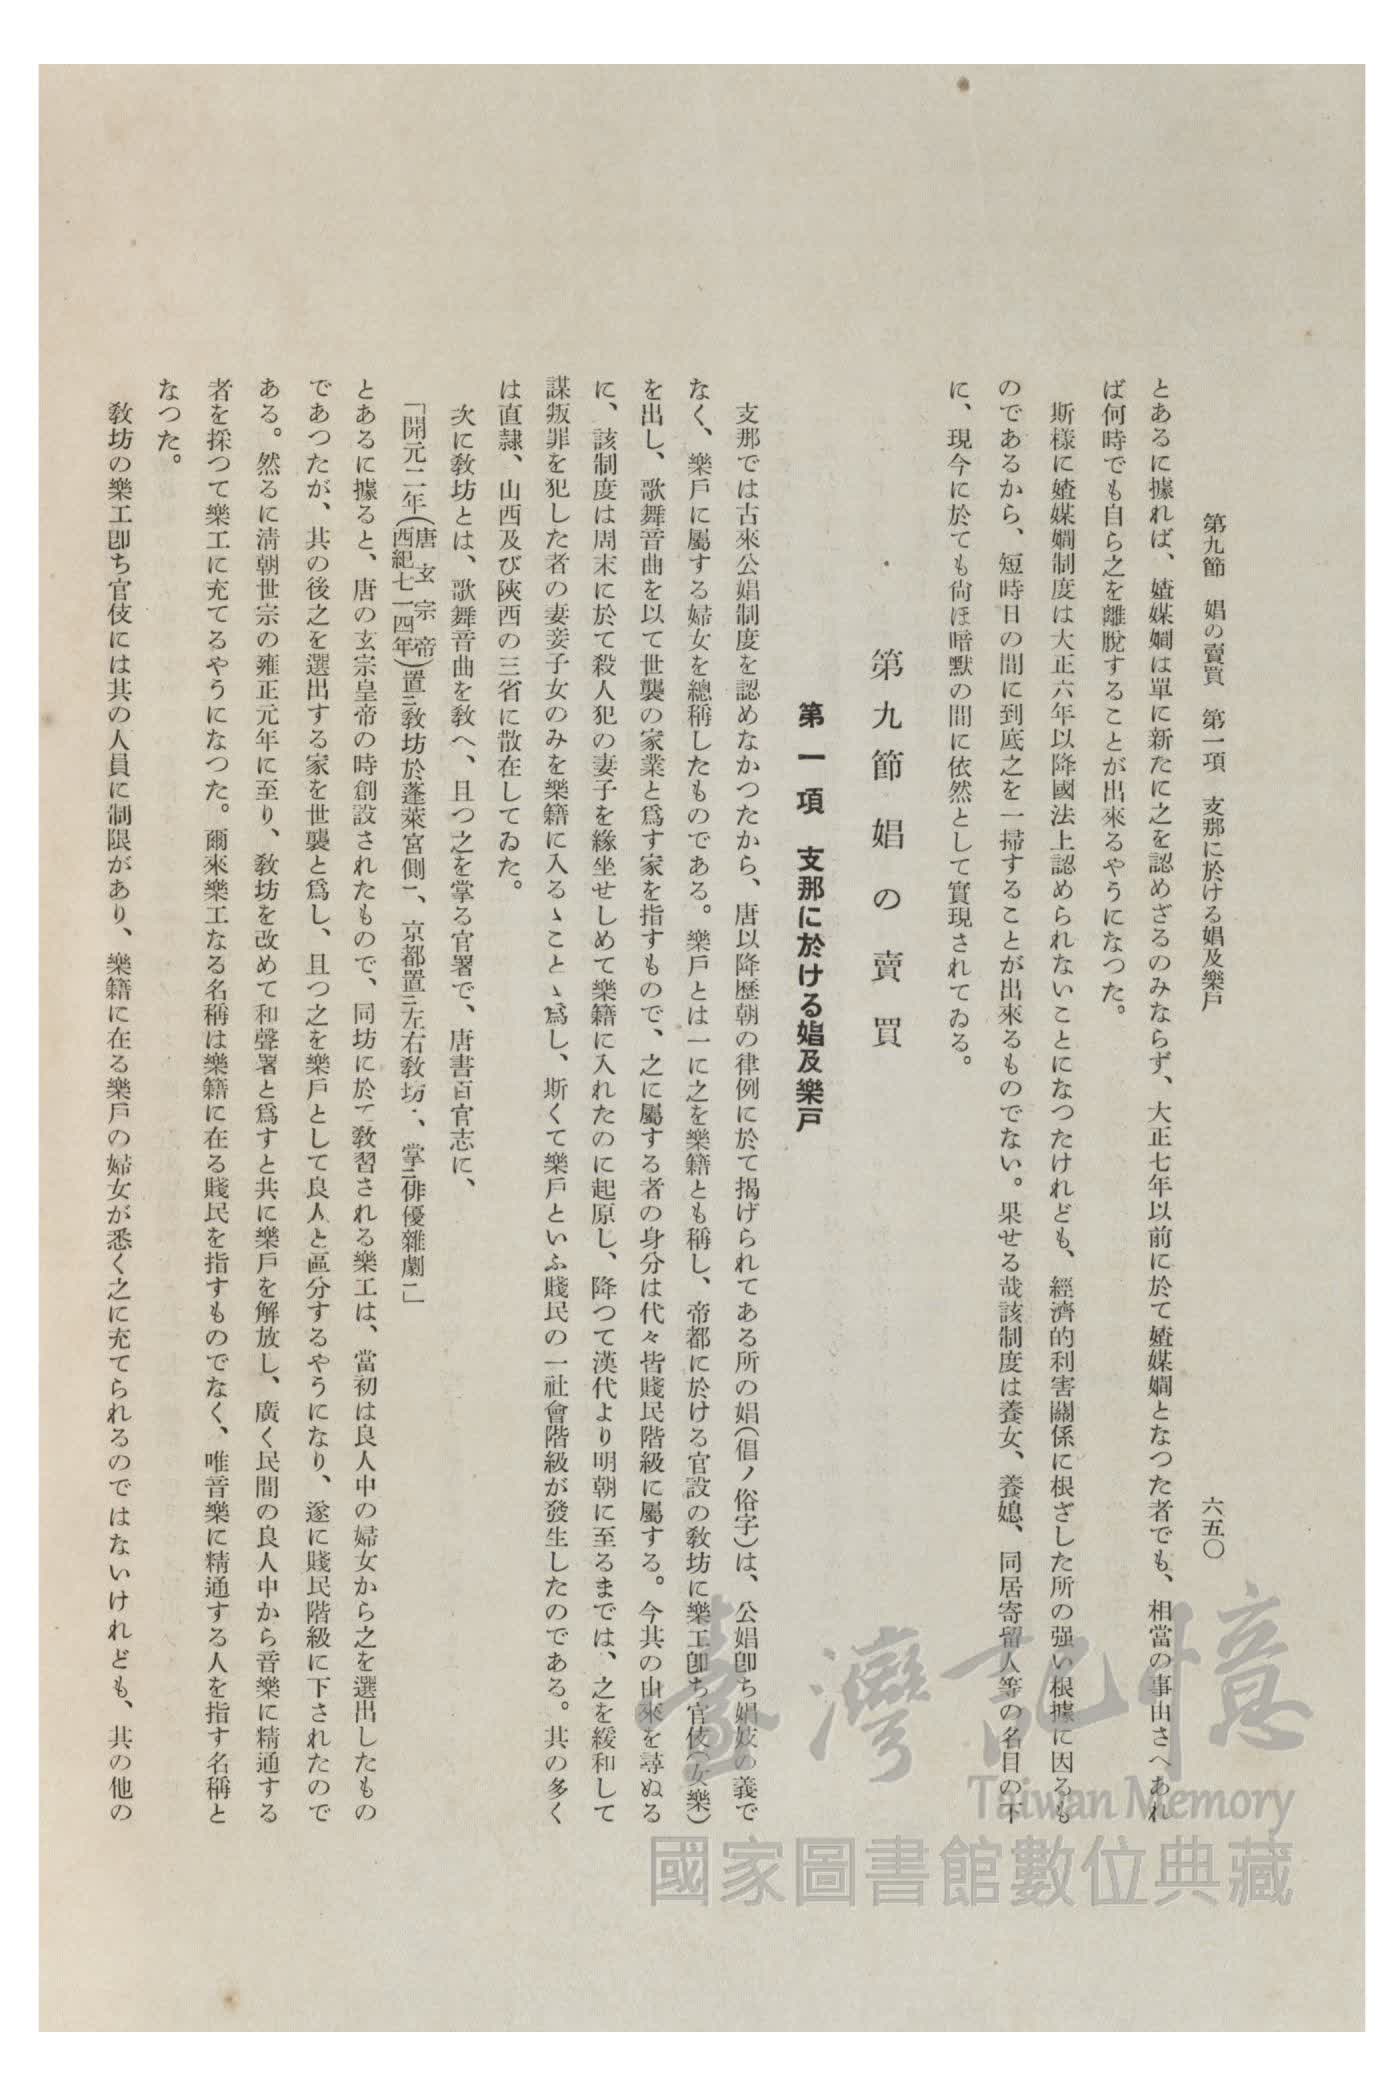 第九節　娼の賣買　第一項　支那に於ける娼及樂戶
六五〇
とあるに據れば、媎媒嫺は單に新たに之を認めざるのみならず、大正七年以前に於て媎媒嫺となつた者でも、相當の事由さへあれ
ば何時でも自ら之を離脫することが出來るやうになつた。
斯樣に媎媒嫺制度は大正六年以降國法上認められないことになつたけれども、經濟的利害關係に根ざした所の强い根據に因るも
のであるから、短時日の間に到底之を一掃することが出來るものでない。果せる哉該制度は養女、養媳、同居寄留人等の名目の下
に、現今に於ても尙ほ暗默の間に依然として實現されてゐる。
第九節　娼の賣買
第一項　支那に於ける娼及樂戶
支那では古來公娼制度を認めなかつたから、唐以降歷朝の律例に於て揭げられてある所の娼(倡ノ俗字)は、公娼卽ち娼妓の義で
なく、樂戶に屬する婦女を總稱したものである。樂戶とは一に之を樂籍とも稱し、帝都に於ける官設の敎坊に樂工卽ち官伎(女樂)
を出し、歌舞音曲を以て世襲の家業と爲す家を指すもので、之に屬する者の身分は代々皆賤民階級に屬する。今其の由來を尋ぬる
に、該制度は周末に於て殺人犯の妻子を緣坐せしめて樂籍に入れたのに起原し、降つて漢代より明朝に至るまでは、之を緩和して
謀叛罪を犯した者の妻妾子女のみを樂籍に入るゝことゝ爲し、斯くて樂戶といふ賤民の一社會階級が發生したのである。其の多く
は直隷、山西及び陝西の三省に散在してゐた。
次に敎坊とは、歌舞音曲を敎へ、且つ之を掌る官署で、唐書百官志に、
「開元二年(唐玄宗帝西紀七一四年)置ニ敎坊於蓬萊宮側一、京都置ニ左右敎坊一、掌ニ俳優雜劇一」
とあるに據ると、唐の玄宗皇帝の時創設されたもので、同坊に於て敎習される樂工は、當初は良人中の婦女から之を選出したもの
であつたが、其の後之を選出する家を世襲と爲し、且つ之を樂戶として良人と區分するやうになり、遂に賤民階級に下されたので
ある。然るに淸朝世宗の雍正元年に至り、敎坊を改めて和聲署と爲すと共に樂戶を解放し、廣く民間の良人中から音樂に精通する
者を採つて樂工に充てるやうになつた。爾來樂工なる名稱は樂籍に在る賤民を指すものでなく、唯音樂に精通する人を指す名稱と
なつた。
敎坊の樂工卽ち官伎には其の人員に制限があり、樂籍に在る樂戶の婦女が悉く之に充てられるのではないけれども、其の他の
臺灣記憶
Taiwan Memory
國家圖書館數位典藏